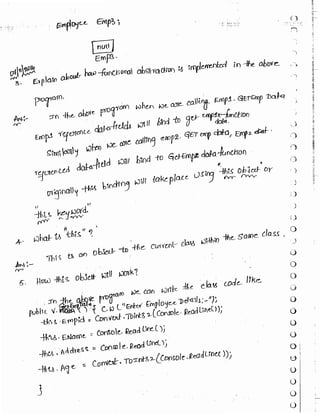 Employee Emp3;
null
Emp3.
3. Explain about how functional abstraction is implemented in the above
program.
Ans:- In the above program when we are calling Emp1. GETEmp Data
Emp1 reference data fields will bind to get function
data.
Similarly when we are calling emp2. GET emp data, Emp2
referenced data field will bind to GetEmpdatafunction
originally this binding will take place using "this object" or
"this keyword."
4. What is "this" ?
Ans:- This is an object to the current class within the same class.
5. How this object will work?
In the above program we can write the class code like
public v. {
C.W.L("Enter Employee Details:-");
this.Empid = Convert.ToInt32(Console.ReadLine());
this.EName = Console.ReadLine();
this.Address = Console.ReadLine();
this.Age = Convert.ToInt32(Console.ReadLine());
}